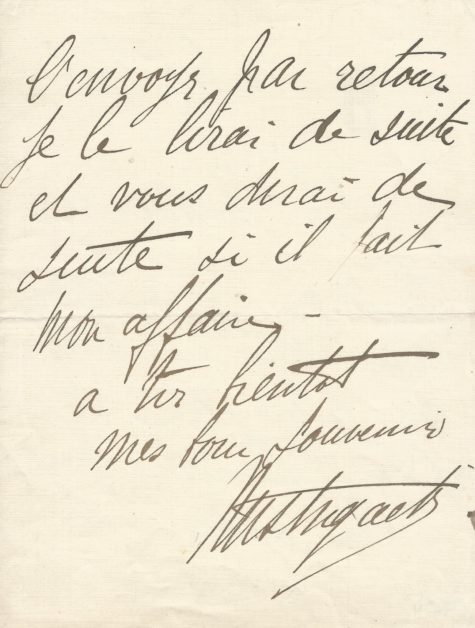 l'envoyez par retour
je le lirai de suite
et vous dirai de
suite si il fait
mon affaire -
a tres bientot
mes bons souvenirs
Mistinguett